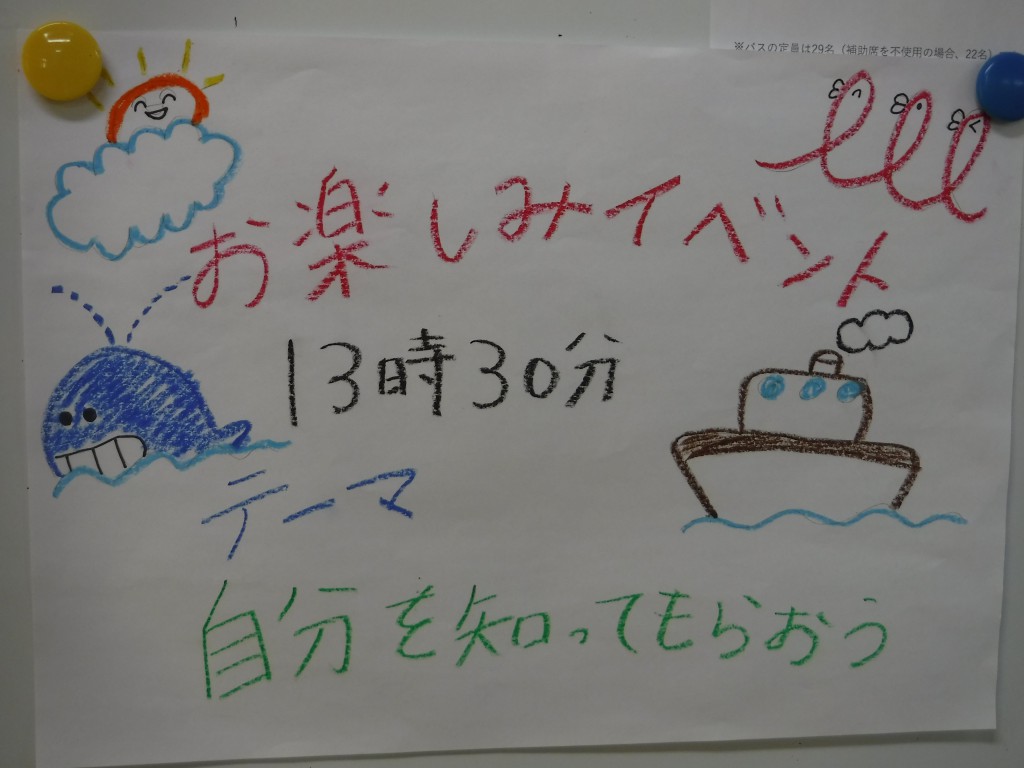 ※バスの定員は29名（補助席を不使用の場合、22名）
お楽しみイベント
13時30分
テーマ
自分を知ってもらおう